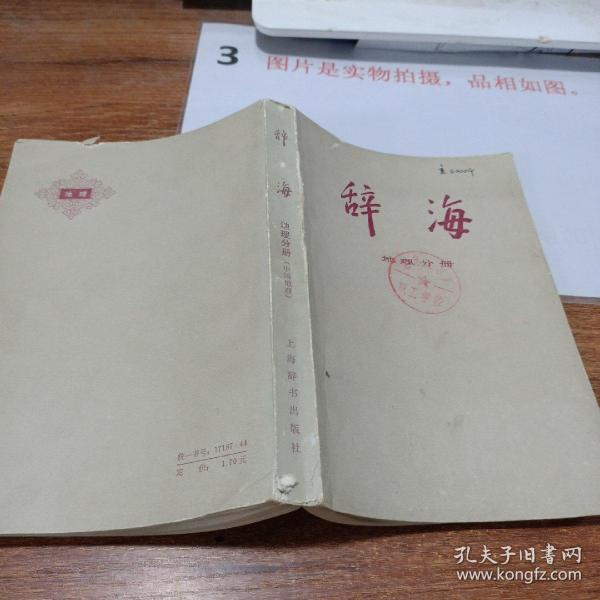 3 图片是实物拍摄，品相如图。
地理
辞海
地理分册（中国地理）
上海辞书出版社
辞海
地理分册
职工学校
统一书号：17187·44
定价：1.70元
孔夫子旧书网
www.kongfz.com